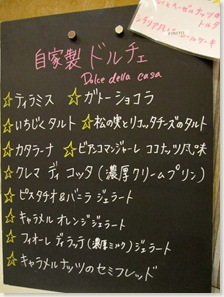 自家製 ドルチェ
Dolce della casa
☆ティラミス ☆ガトーショコラ
☆いちじくタルト ☆松の実とリコッタチーズのタルト
☆カタラーナ ☆ビアンコマンジャーレ ココナッツ風味
☆クレマ ディ コッタ(濃厚クリームプリン)
☆ピスタチオ&バニラ ジェラート
☆キャラメル オレンジ ジェラート
☆フィオーレ ディ ラッテ(濃厚ミルク)ジェラート
☆キャラメルナッツのセミフレッド